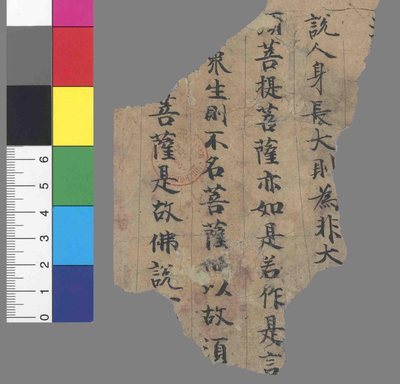 說人身長大則為非大
菩提菩薩亦如是若作是言
衆生則不名菩薩以故湏
菩薩是故佛說一
6
5
4
3
2
1
0